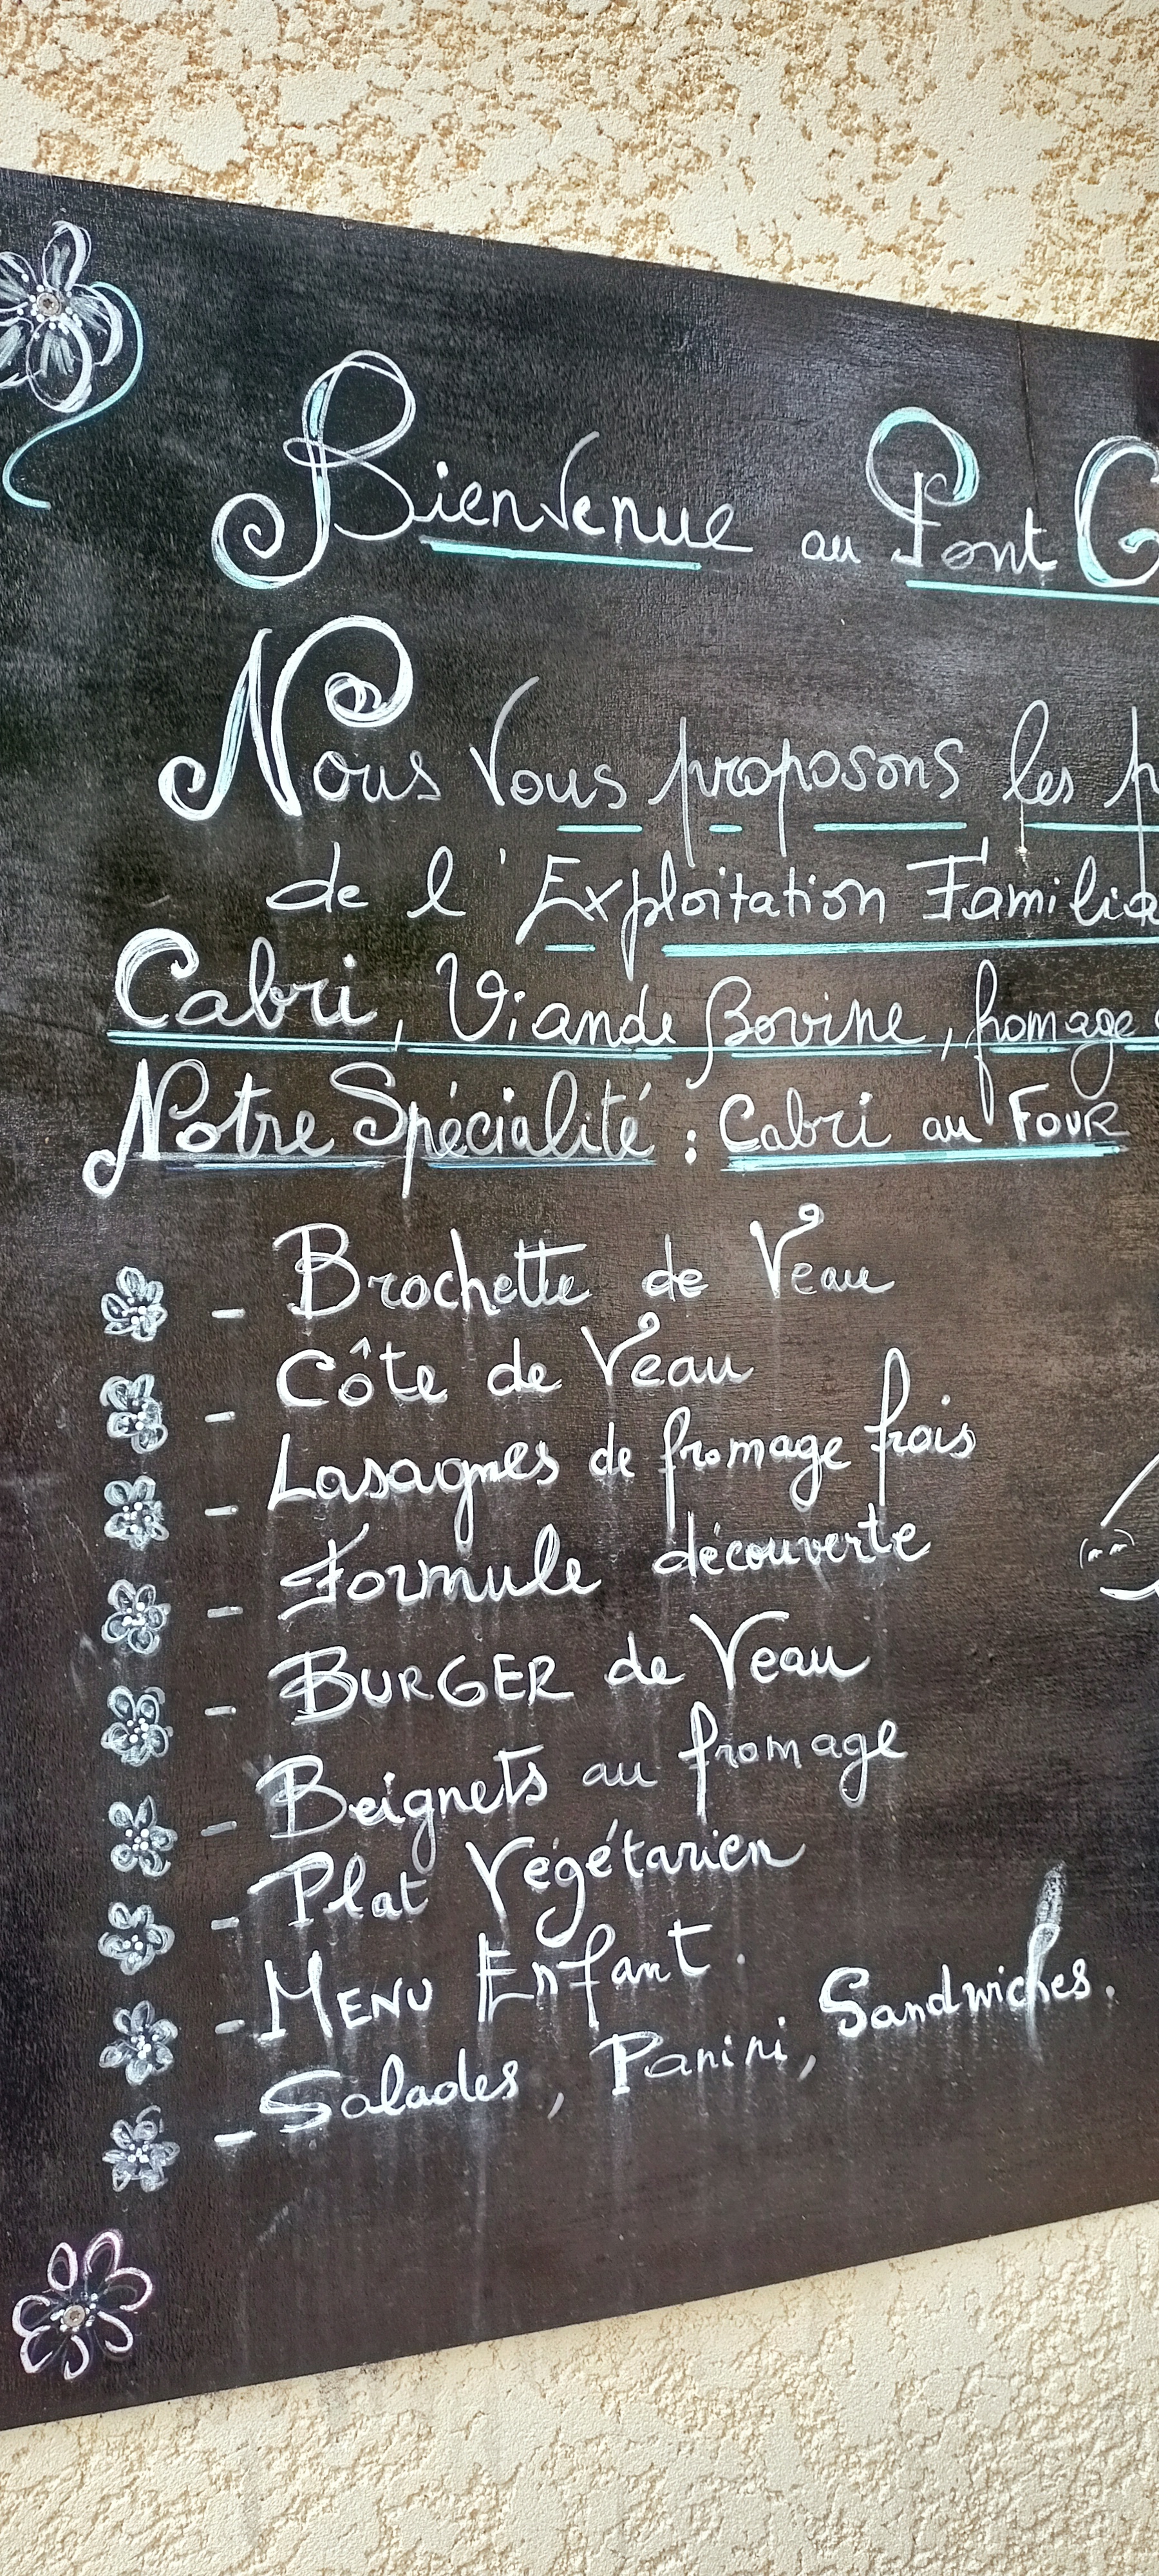 Bienvenue au Pont G
Nous Vous proposons les p
de l'Exploitation Familia
Cabri, Viande Bovine, fromage
Notre Spécialité : Cabri au FOUR
- Brochette de Veau
- Côte de Veau
- Lasagnes de fromage frais
- Formule découverte
- BURGER de Veau
- Beignets au fromage
- Plat Végétarien
- MENU Enfant.
- Salades, Panini, Sandwiches.